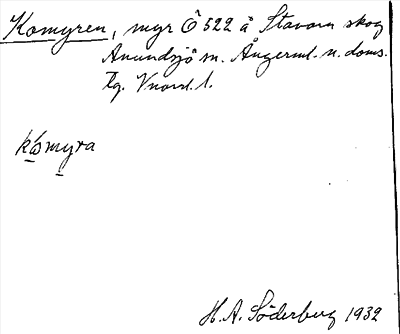 Komyren, myr Ö 522 å Stavarn skog
Anundsjö sn. Ångerml. n. doms.
tg. Vnorrl. l.
kómyra
H.A. Söderberg 1932